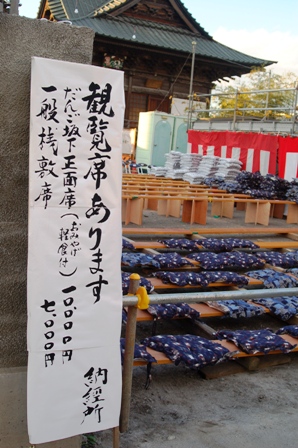 観覧席あります
だんご坂下正面席(おみやげ軽食付) 一〇、〇〇〇円
一般桟敷席 七、〇〇〇円
納経所